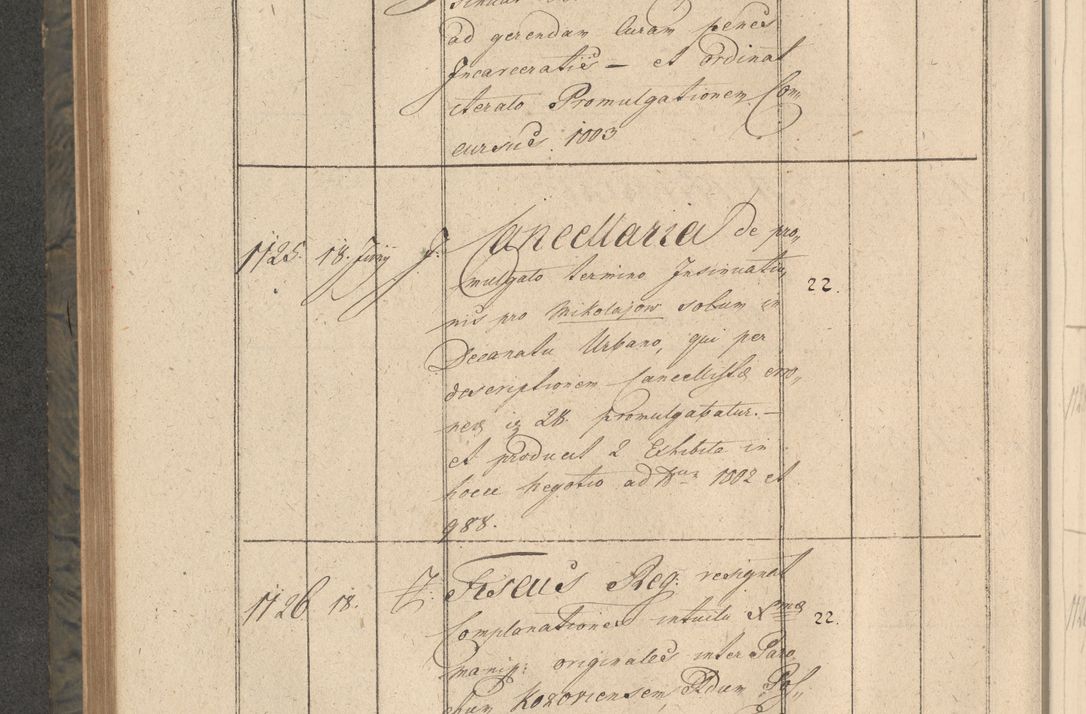 ad gerendam Curam penes
Incarceratis — et ordinat
iterato Promulgationem Con,,
cursus. 1003
1125. 18. Juny J. Cancellaria de pro,,
mulgato termino Insinuatio,,
nis pro Mikolajow solum in 22.
Decanatu Urbano, qui per
descriptionem Cancellistæ erro,,
nee 28. promulgabatur. —
et producit 2 Exhibita in
hocce Negotio ad 1002 et
988.
1126 18. Fiscus Reg. resignat
Complanationes intuitu 22.
manip: originales inter Paro,,
chum Kozoviensem